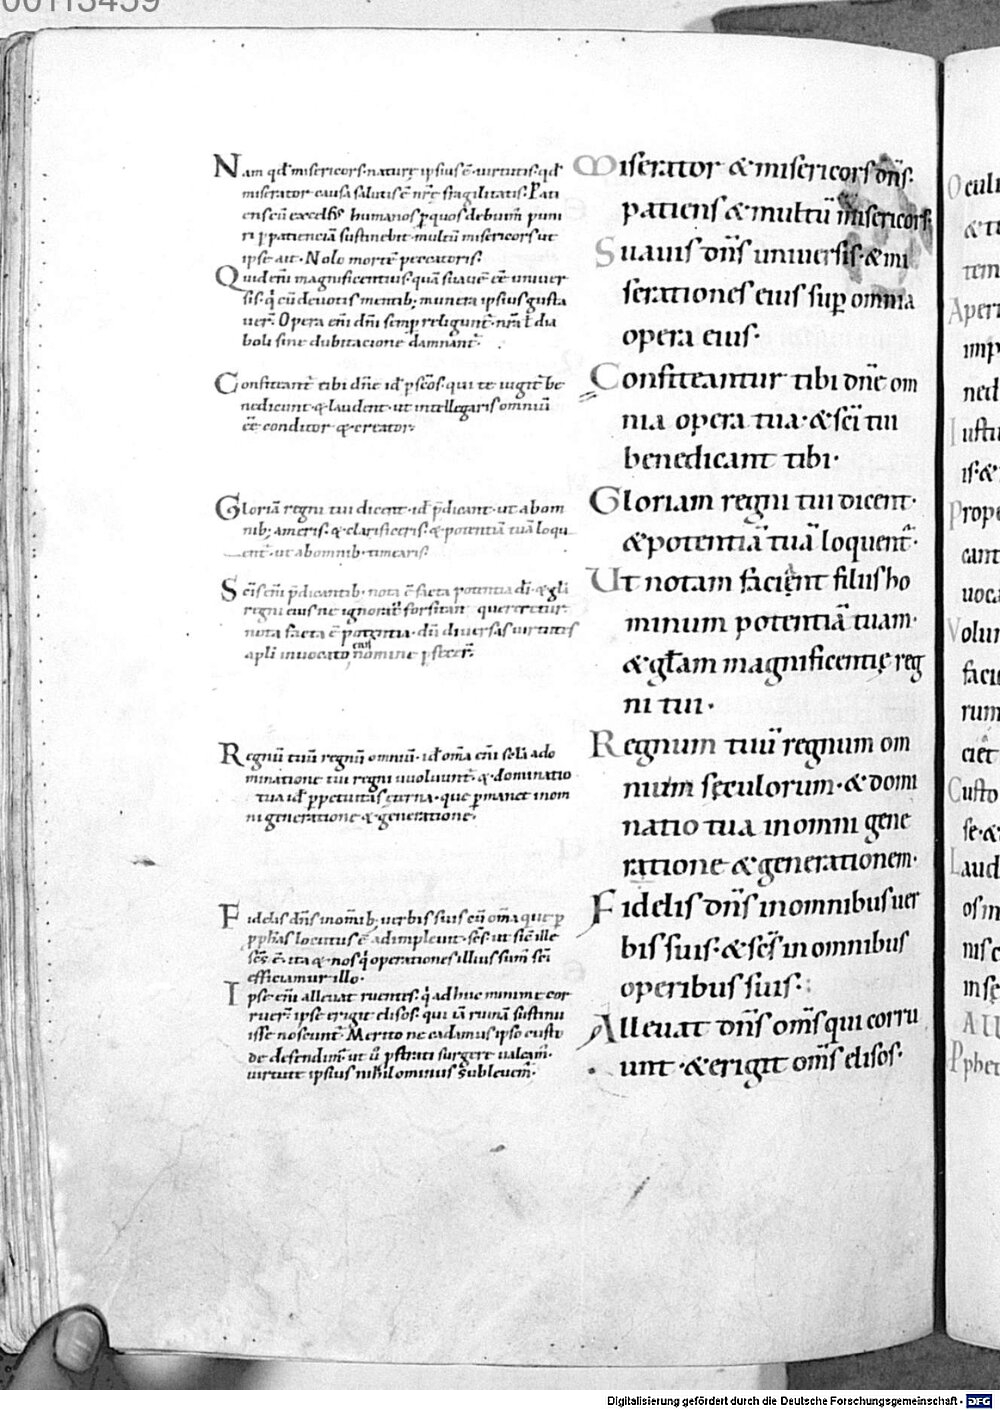 00113459
Nam qđ misericors·naturę ipsius ē·virtutis·qđ
miserator causa salutis ē nr̄ę fragilitatis·Pati
ens cū excelsus humanos p quos debuim̄ puni
ri p patienciā sustinebit·multū misericors ut
ipse ait·Nolo mortē peccatoris·
Quid eni magnificentius·quā suaue ēē uniuer
sis·q̇ cū deuotis mentib; munera ipsius gusta
uer̄·Opera eni dn̄i semp religunt̄·nr̄a ł dia
boli sine dubitacione damnant̄·
Confiteant̄ tibi dn̄e id p sc̄os·qui te iugit̄ be
nedicunt·&laudent·ut intellegaris omniū
ēē conditor &creator·
Gloriā regni tui dicent·id p̄dicant·ut abom
nib; ameris·&clarificeris·&potentiā tuā loqu
ent̄·ut abomnib·timearis·
Sc̄is eni p̄dicantib·nota ē facta potentia dī·&gli
regni eius ne ignorar̄ forsitan quereretur·
nota facta ē potentia·dū diuersas uirtutes
apli inuocato eius nomine p fecer̄·
Regnū tuū regnū omniū·id om̄a eni sc̄la ado
minatione tui regni uuoluunt̄·&dominatio
tua id p petuitas ęterna·que p manet inom
ni generatione &generatione·
Fidelis dn̄s inom̄ib; uerbis suis cū om̄a que p
p phas locutus ē adimpleuit·sc̄s·ut sic ille
sc̄s ē·ita &nos q̇ operationes illius sum̄ sc̄i
efficiamur illo·
Ipse eni alleuat ruentes·q̇ ad huc minime cor
ruer̄ ipse erigit elisos·qui iā ruinā sustinu
isse noscunt̄·Merito ne cadamus ipso custo
de defendim̄·ut ū p strati surgere ualeam̄·
uirtute ipsius nihilominus subleuem̄·
Miserator &misericors dn̄s·
patiens &multū misericors·
Suauis dn̄s uniuersis·&mi
serationes eius sup omnia
opera eius·
Confiteantur tibi dn̄e om
nia opera tua·&sc̄i tui
benedicant tibi·
Gloriam regni tui dicent·
&potentiā tuā loquent̄·
Ut notam facient filiis ho
minum potentiā tuam·
&gl̄am magnificentię reg
ni tui·
Regnum tuū regnum om
nium sęculorum·&domi
natio tua inomni gene
ratione &generationem·
Fidelis dn̄s inomnibus uer
bis suis·&sc̄s in omnibus
operibus suis·
Alleuat dn̄s om̄s qui corru
unt·&erigit om̄s elisos·
Oculi
Digitalisierung gefördert durch die Deutsche Forschungsgemeinschaft - DFG